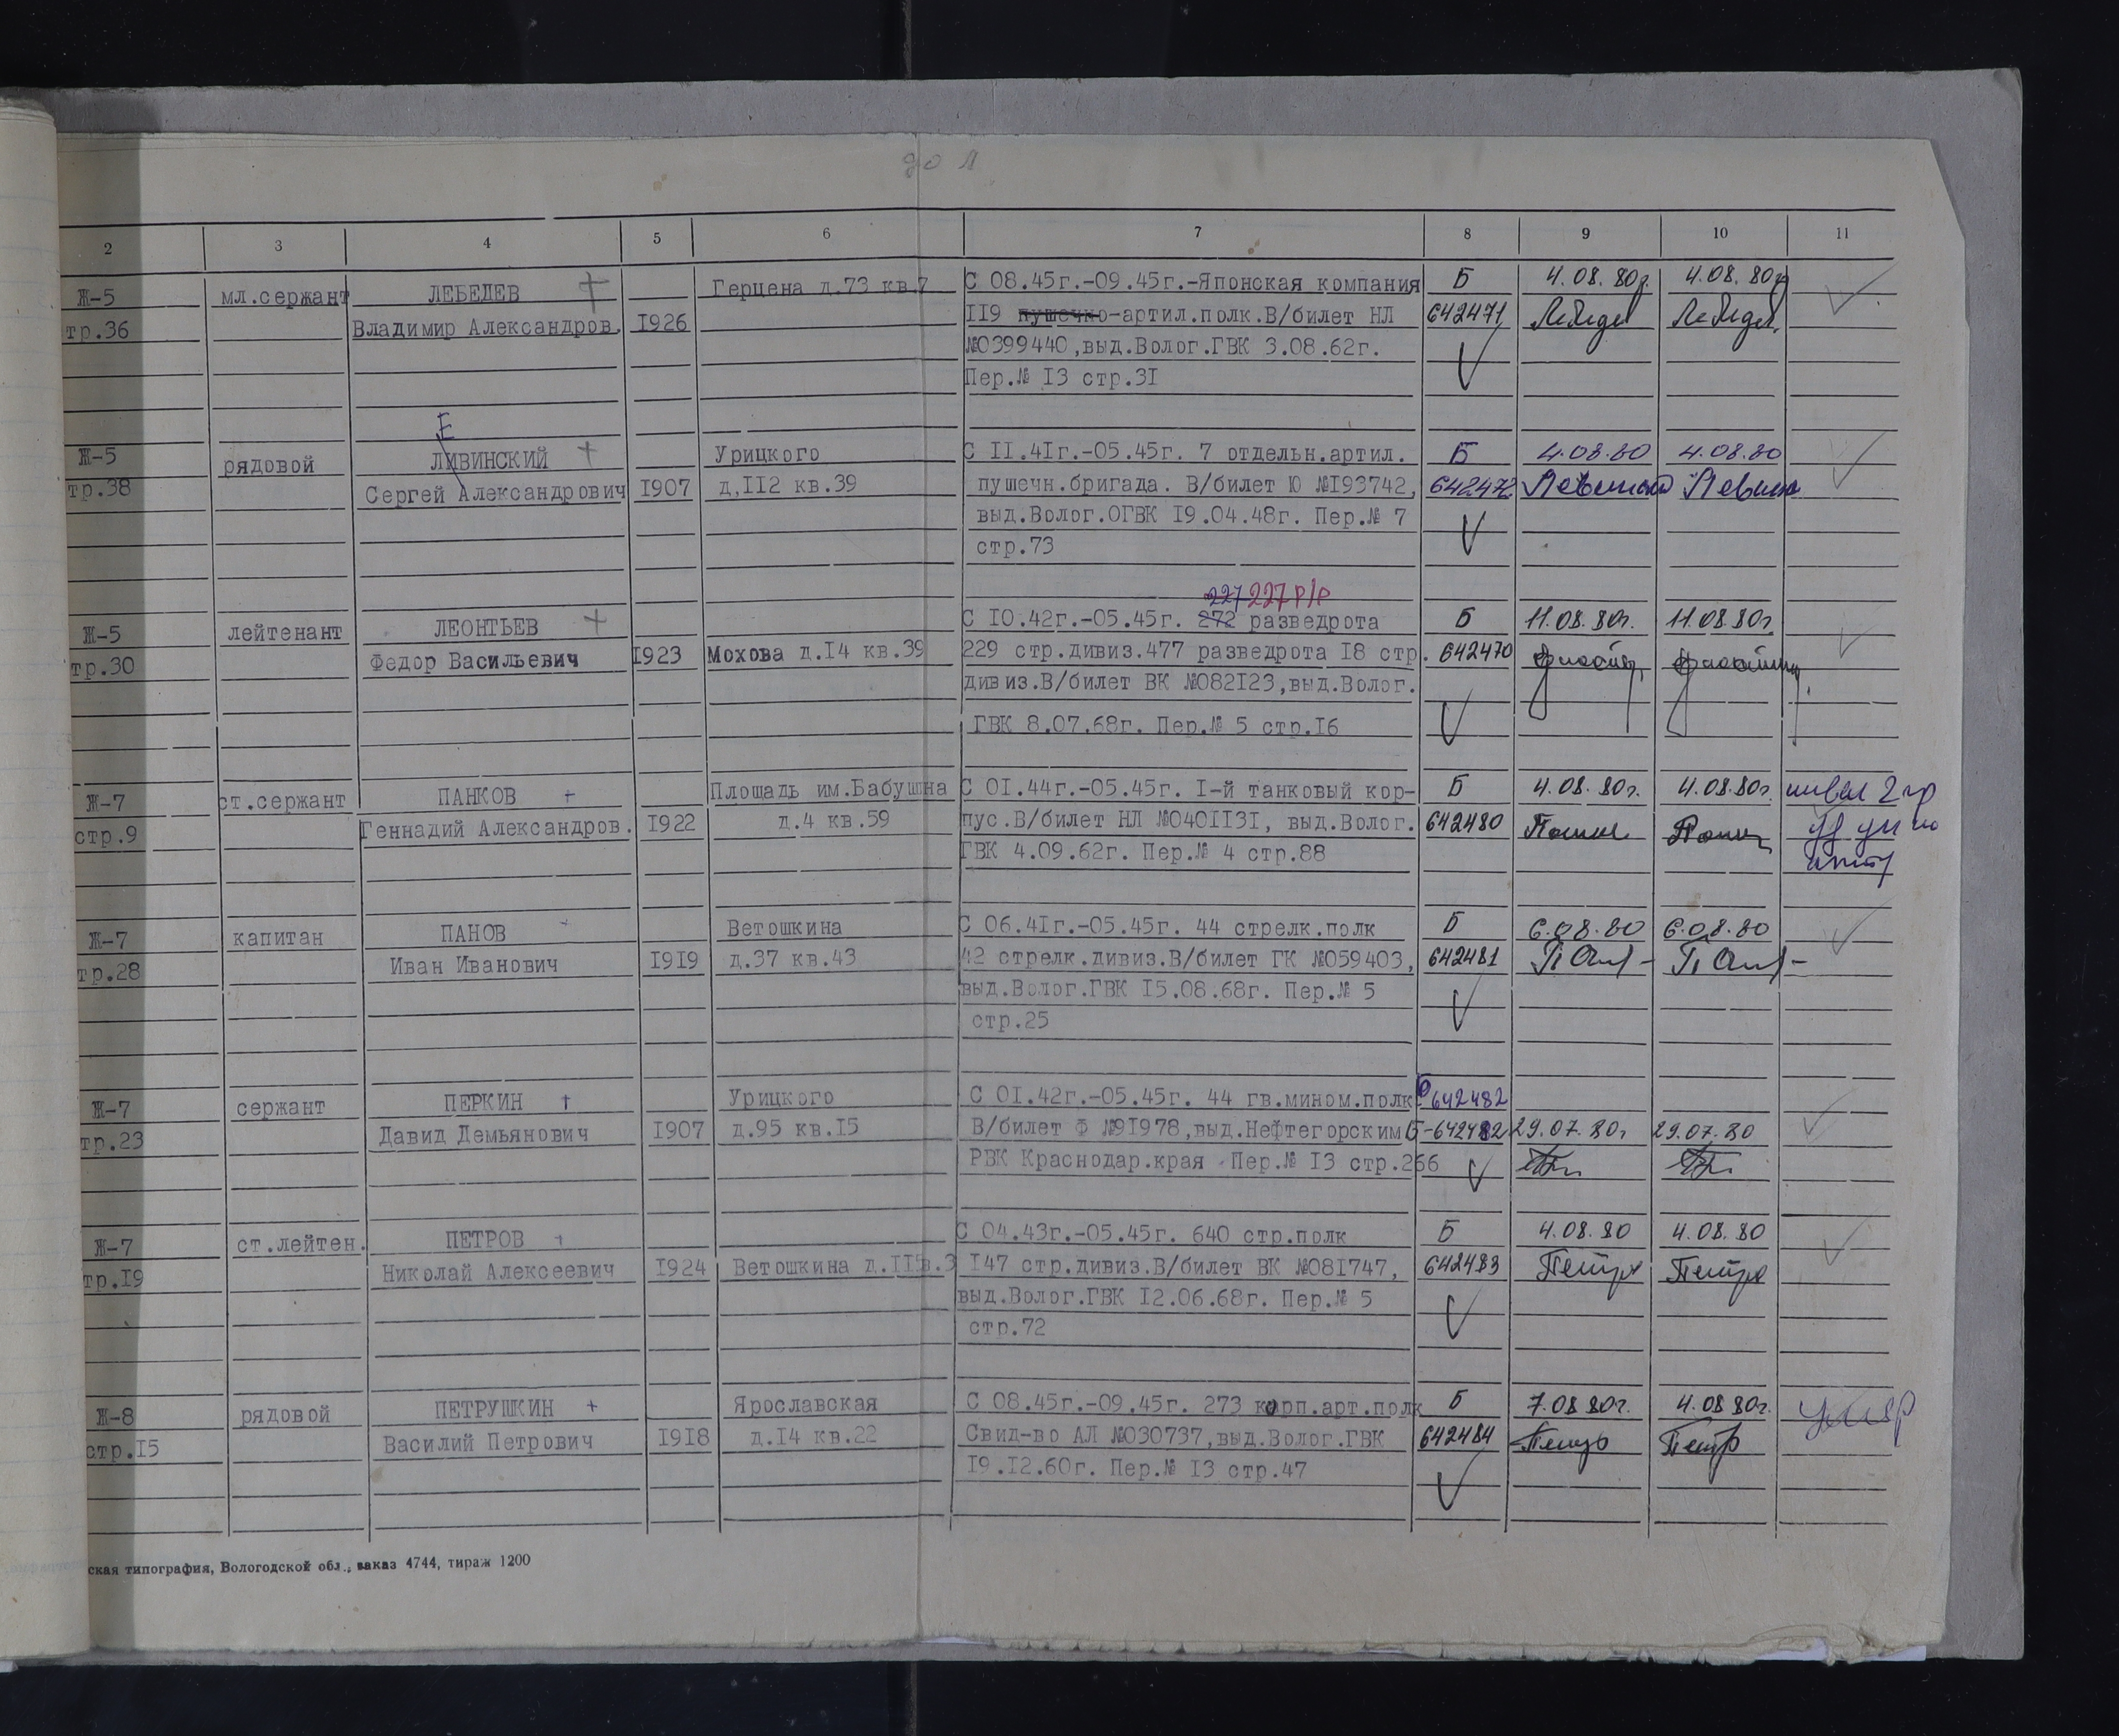 до Л
2 3 4 5 6 7 8 9 10 11
Ж-5 мл.сержант ЛЕБЕДЕВ + Герцена д.73 кв.7 С 08.45г.-09.45г.-Японская компания Б 4.08.80г. 4.08.80г.
тр.36 Владимир Александров. 1926 119 пушечно-артил.полк.В/билет НЛ 642471 Лебедев Лебедев
№0399440,выд.Волог.ГВК 3.08.62г.
Пер.№ 13 стр.31
Е
Ж-5 рядовой ЛИВИНСКИЙ + Урицкого С 11.41г.-05.45г. 7 отдельн.артил. Б 4.08.80 4.08.80
тр.38 Сергей Александрович 1907 д.112 кв.39 пушечн.бригада. В/билет Ю №193742, 642472
выд.Волог.ОГВК 19.04.48г. Пер.№ 7
стр.73
227 227 р/р
Ж-5 лейтенант ЛЕОНТЬЕВ + С 10.42г.-05.45г. 272 разведрота Б 11.08.80г. 11.08.80г.
тр.30 Федор Васильевич 1923 Мохова д.14 кв.39 229 стр.дивиз.477 разведрота 18 стр. 642470
дивиз.В/билет ВК №082123,выд.Волог.
ГВК 8.07.68г. Пер.№ 5 стр.16
Ж-7 ст.сержант ПАНКОВ + Площадь им.Бабушкина С 01.44г.-05.45г. 1-й танковый кор- Б 4.08.80г. 4.08.80г. инвал 2 гр
стр.9 Геннадий Александров. 1922 д.4 кв.59 пус.В/билет НЛ №0401131, выд.Волог. 642480
ГВК 4.09.62г. Пер.№ 4 стр.88
Ж-7 капитан ПАНОВ + Ветошкина С 06.41г.-05.45г. 44 стрелк.полк Б 6.08.80 6.08.80
тр.28 Иван Иванович 1919 д.37 кв.43 42 стрелк.дивиз.В/билет ГК №059403, 642481
выд.Волог.ГВК 15.08.68г. Пер.№ 5
стр.25
Ж-7 сержант ПЕРКИН + Урицкого С 01.42г.-05.45г. 44 гв.мином.полк 642482
тр.23 Давид Демьянович 1907 д.95 кв.15 В/билет Ф №91978,выд.Нефтегорским Б-642482 29.07.80г 29.07.80
РВК Краснодар.края Пер.№ 13 стр.266
Ж-7 ст.лейтен. ПЕТРОВ + С 04.43г.-05.45г. 640 стр.полк Б 4.08.80 4.08.80
тр.19 Николай Алексеевич 1924 Ветошкина 147 стр.дивиз.В/билет ВК №081747, 642483 Петров Петров
выд.Волог.ГВК 12.06.68г. Пер.№ 5
стр.72
Ж-8 рядовой ПЕТРУШКИН + Ярославская С 08.45г.-09.45г. 273 корп.арт.полк Б 7.08 80г. 4.08 80г. умер
стр.15 Василий Петрович 1918 д.14 кв.22 Свид-во АЛ №030737,выд.Волог.ГВК 642484
19.12.60г. Пер.№ 13 стр.47
ская типография, Вологодской обл., заказ 4744, тираж 1200